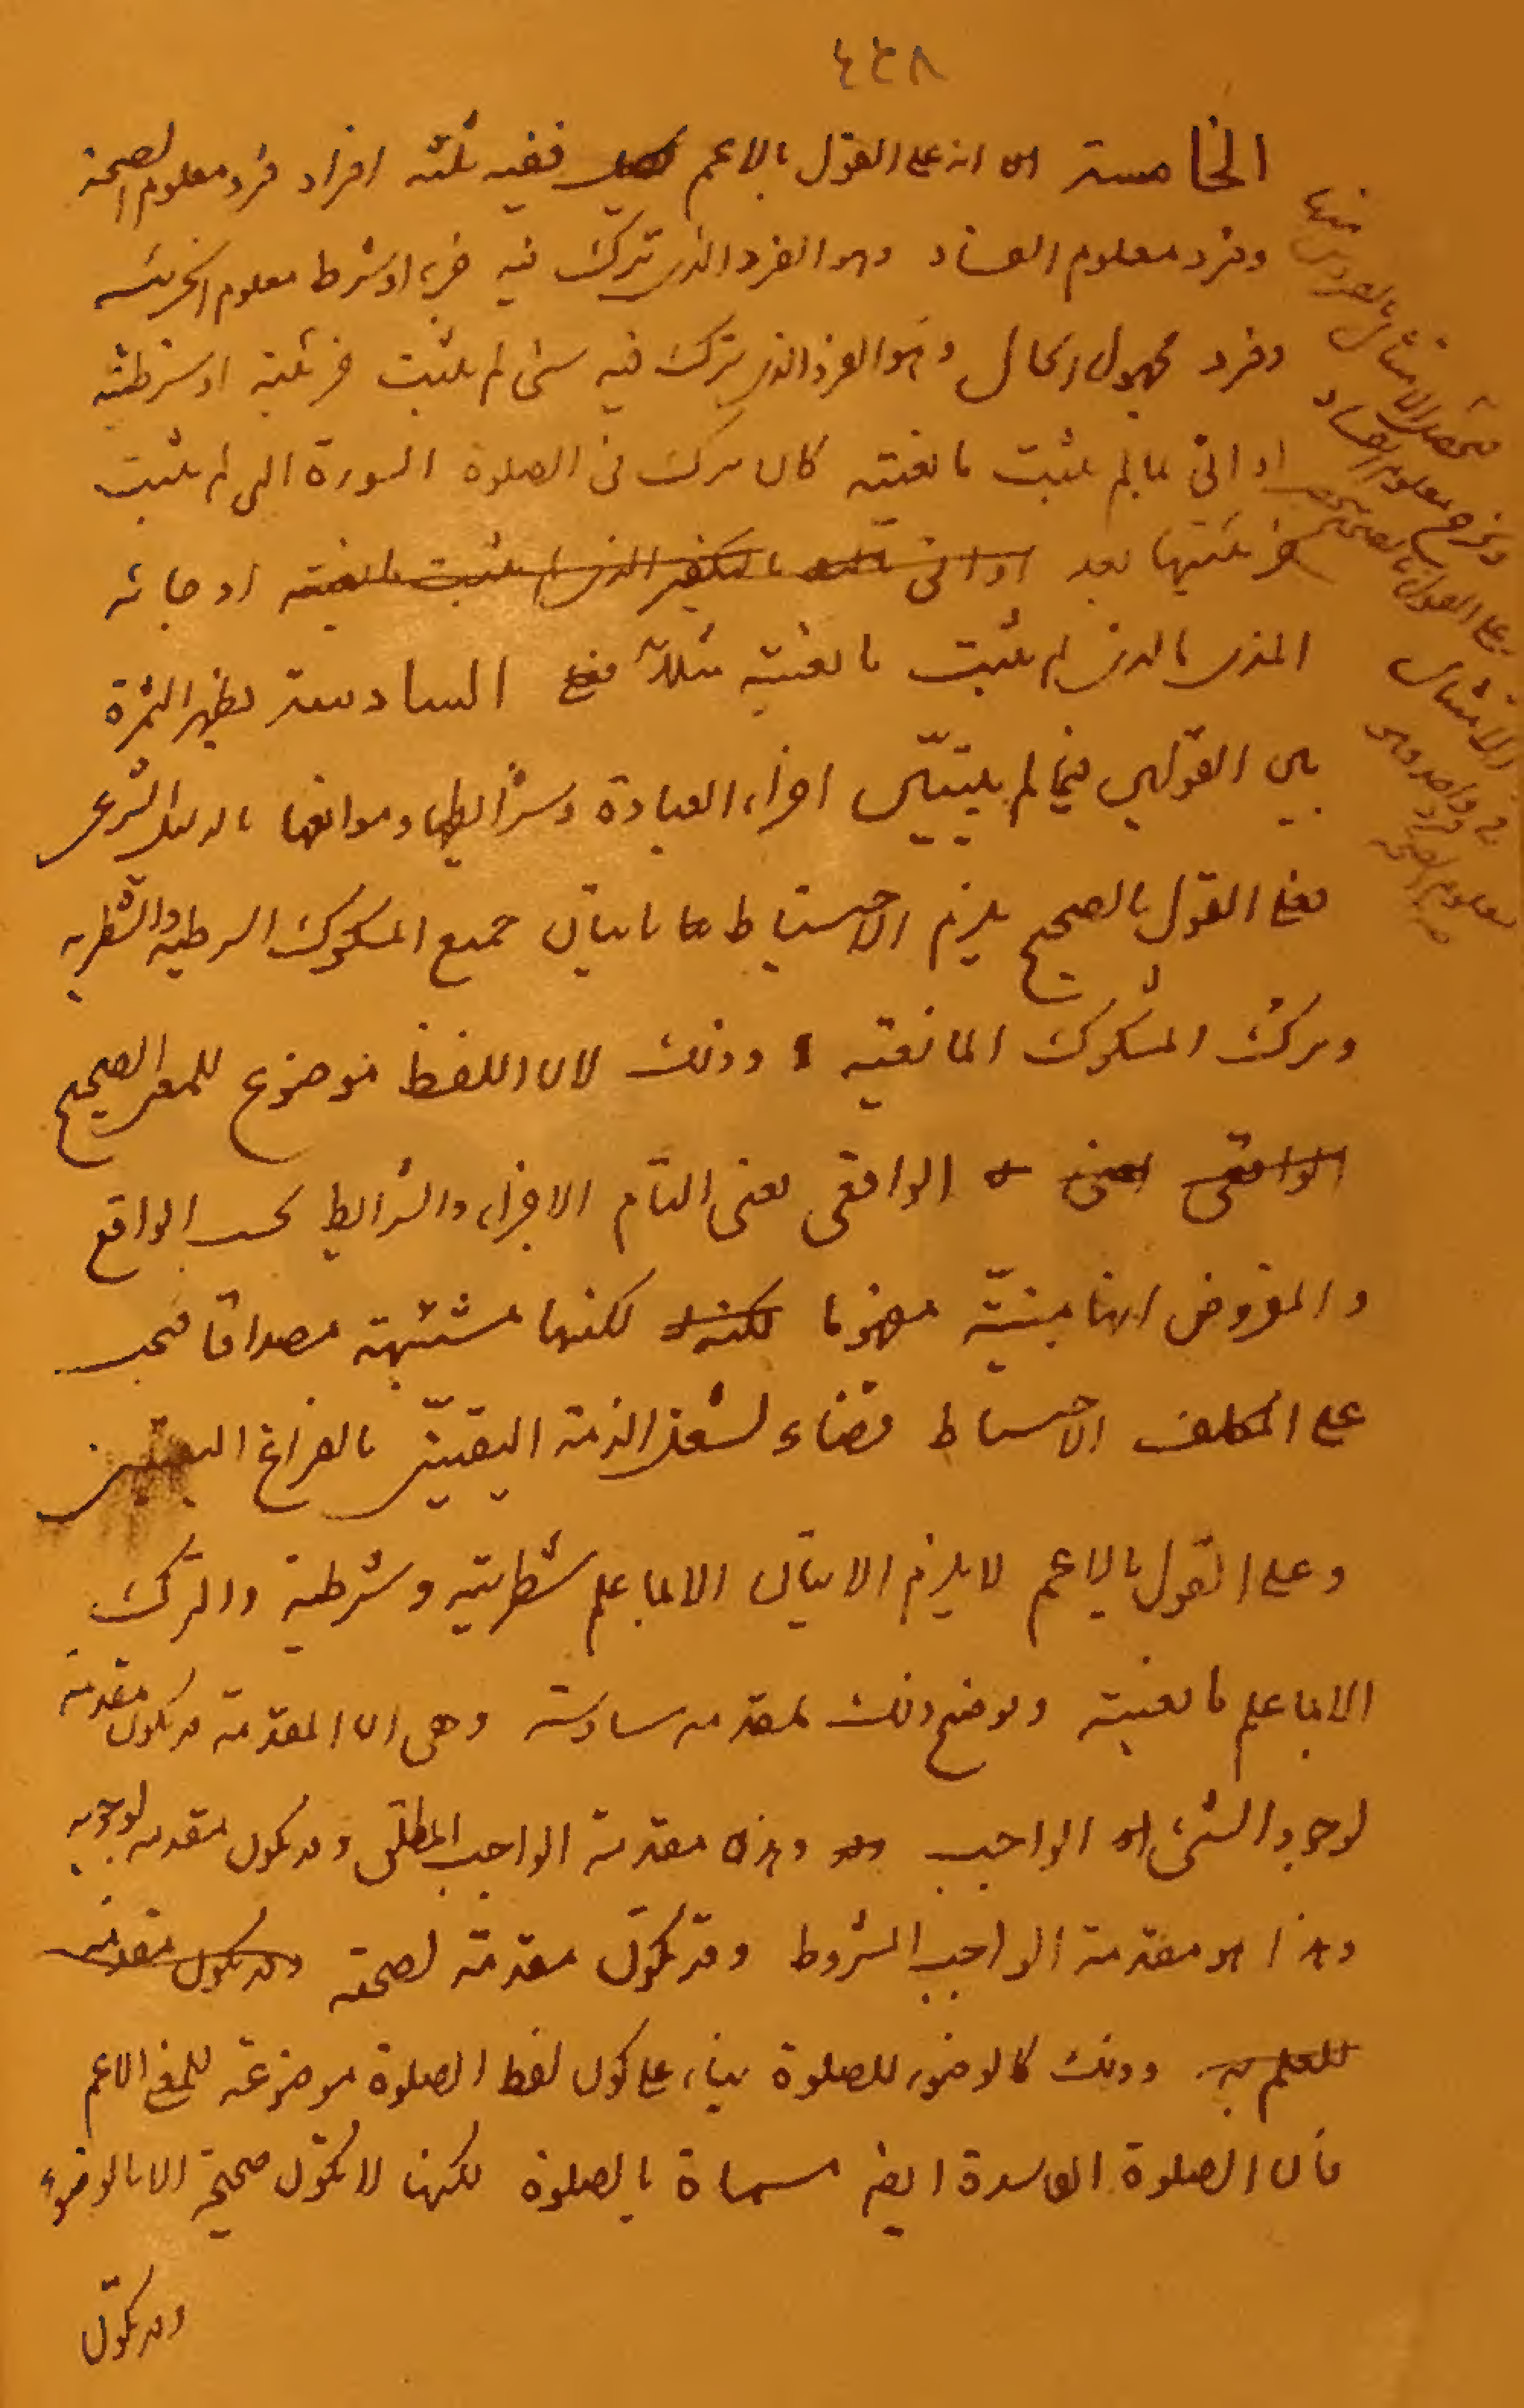 ٤٤٨
الخامسة انه على القول بالاعم ففيه ثلثه افراد فرد معلوم الصحة
وفرد معلوم الفساد وهو الفرد الذى ترك فيه جزء او شرط معلوم الجزئيه
وفرد مجهول الحال وهو الفرد الذى يترك فيه شئ لم يثبت جزئيته او شرطيته
او اتى بما لم يثبت مانعيته كان يترك فى الصلوة السورة التى لم يثبت
جزئيتها بعد او اتى بالتكفير الذى لم يثبت مانعيته او جائه
المذى الذى لم يثبت مانعيته مثلاً السادسة يظهر الثمرة
بين القولين فيما لم يتبيّن اجزاء العبادة وشرايطها وموانعها بالدليل الشرعى
فعلى القول بالصحيح يلزم الاحتياط باتيان جميع المشكوك الشرطيه والشطريه
وترك المشكوك المانعيه وذلك لان اللفظ موضوع للمعنى الصحيح
الواقعى اعنى الواقعى يعنى التام الاجزاء والشرايط بحسب الواقع
والمفروض انها مبنيّة مفهوما لكنها لكنها مشتبهة مصداقا فيجب
على المكلف الاحتياط قضاء لشغل الذمة اليقينى بالفراغ اليقينى
وعلى القول بالاعم لا يلزم الاتيان الا بما علم شطريته وشرطية والترك
الا بما علم مانعيته ونوضح ذلك بمقدمه سادسة وهى ان المقدمة قد يكون مقدمة
لوجود الشئ الواجب وهذه مقدمة الواجب المطلق وقد يكون مقدمه لوجوبه
وهذا هو مقدمة الواجب المشروط وقد يكون مقدمة لصحته وقد يكون مقدمة
للعلم به وذلك كالوضوء للصلوة بناء على كون لفظ الصلوة موضوعة للمعنى الاعم
فان الصلوة الفاسدة ايضا مسماة بالصلوة لكنها لا تكون صحيحة الا بالوضوء
وقد يكون
فيحصل الامتثال
معلوم الفساد
على القول بالصحيح
الامتثال
فى فرد واحد وهو
معلوم الصحة